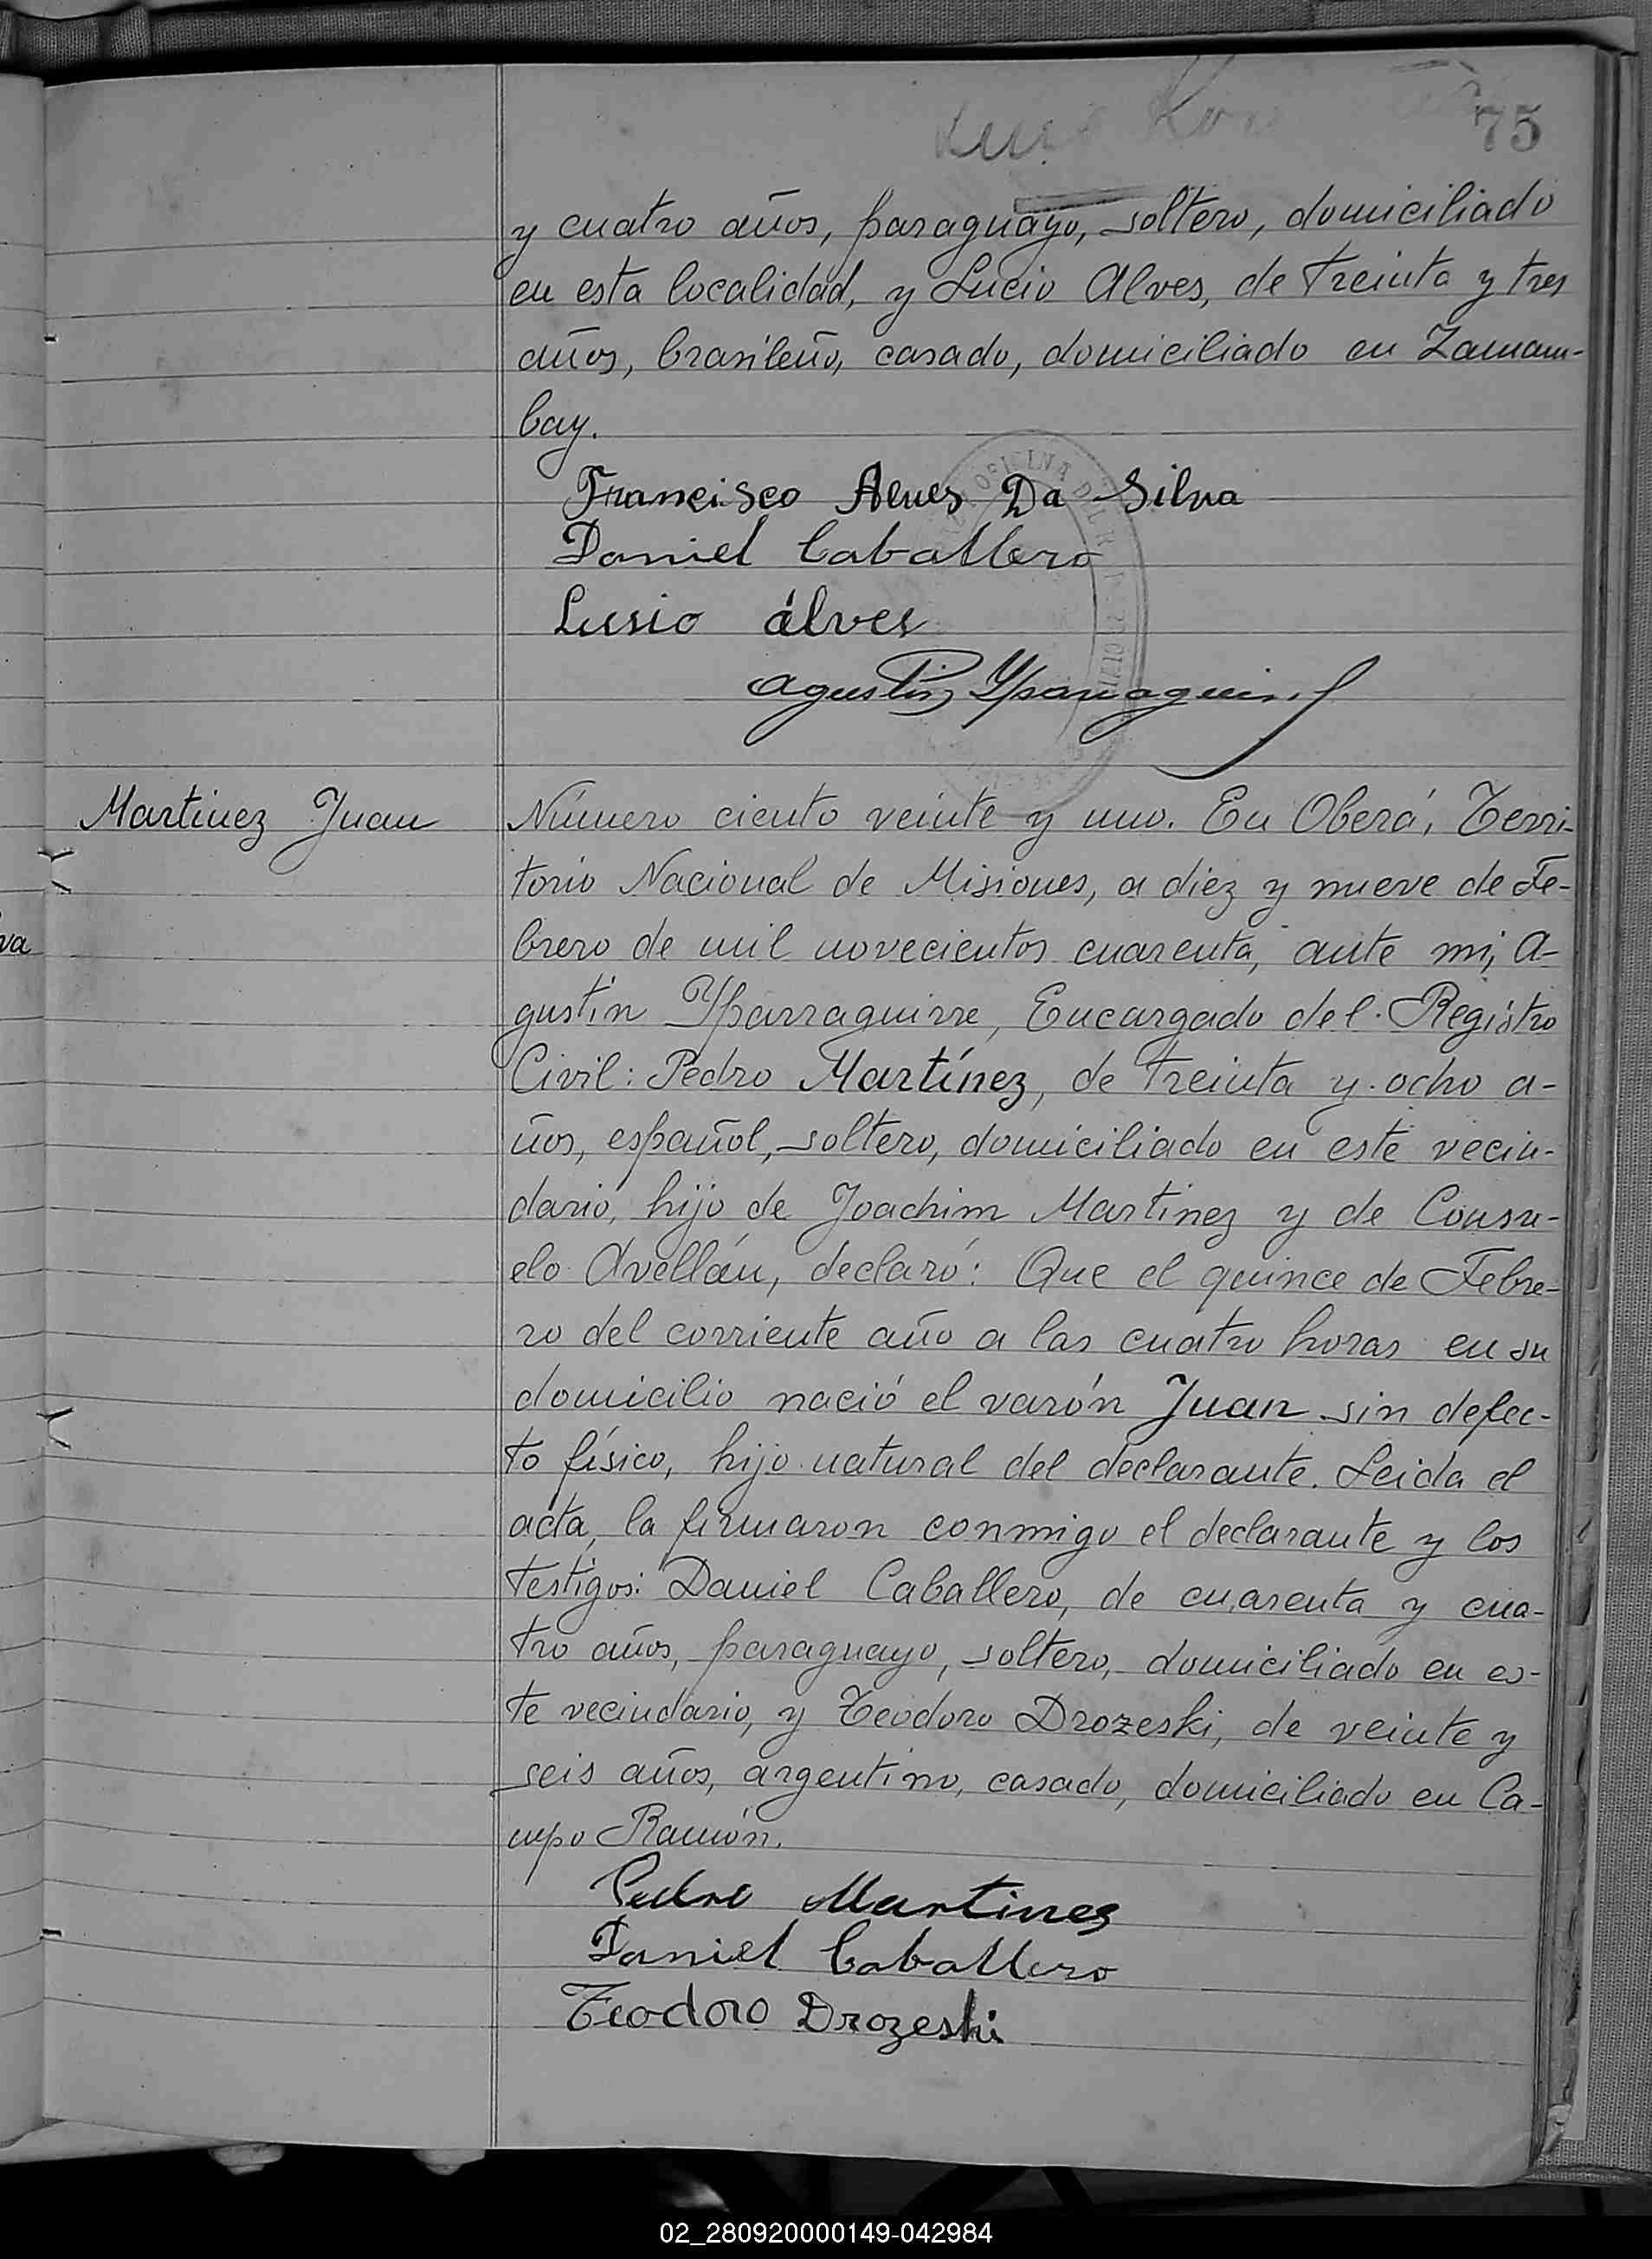 75
y cuatro años, paraguayo, soltero, domiciliado
en esta localidad, y Lucio Alves, de treinta y tres
años, brasileño, casado, domiciliado en Zamam-
bay.
Francisco Alves Da Silva
Daniel Caballero
Lusio álves
Agustin Yparraguirre
Martinez Juan
Número ciento veinte y uno. En Oberá, Terri-
torio Nacional de Misiones, a diez y nueve de Fe-
brero de mil novecientos cuarenta, ante mi, A-
gustín Yparraguirre, Encargado del Registro
Civil: Pedro Martínez, de treinta y ocho a-
ños, español, soltero, domiciliado en este vecin-
dario, hijo de Joachim Martinez y de Consu-
elo Avellán, declaró: Que el quince de Febre-
ro del corriente año a las cuatro horas en su
domicilio nació el varón Juan sin defec-
to físico, hijo natural del declarante. Leida el
acta, la firmaron conmigo el declarante y los
testigos: Daniel Caballero, de cuarenta y cua-
tro años, paraguayo, soltero, domiciliado en es-
te vecindario, y Teodoro Drozeski, de veinte y
seis años, argentino, casado, domiciliado en Ca-
mpo Ramón.
Pedro Martines
Daniel Caballero
Teodoro Drozeski
va
02_280920000149-042984